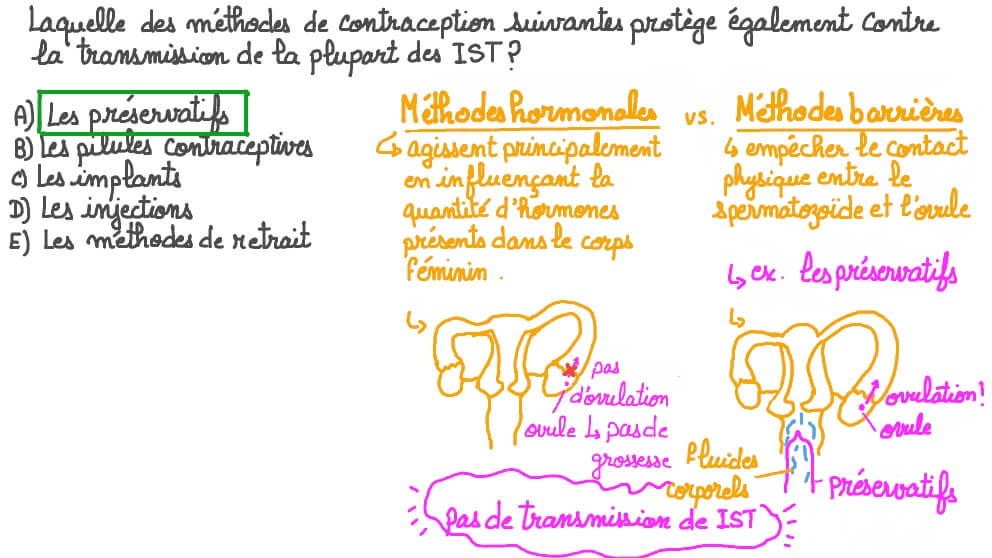 Laquelle des méthodes de contraception suivantes protège également contre
la transmission de la plupart des IST?
A) Les préservatifs
B) Les pilules contraceptives
C) Les implants
D) Les injections
E) Les méthodes de retrait
Méthodes hormonales
↳ agissent principalement
en influençant la
quantité d'hormones
présents dans le corps
féminin.
vs.
Méthodes barrières
↳ empêcher le contact
physique entre le
spermatozoïde et l'ovule
↳ ex. les préservatifs
↳
pas
d'ovulation
ovule ↳ pas de
grossesse
↳
ovulation!
ovule
fluides
corporels
préservatifs
pas de transmission de IST